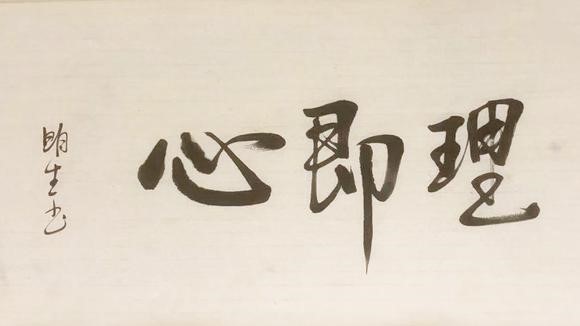 理即心
明生书